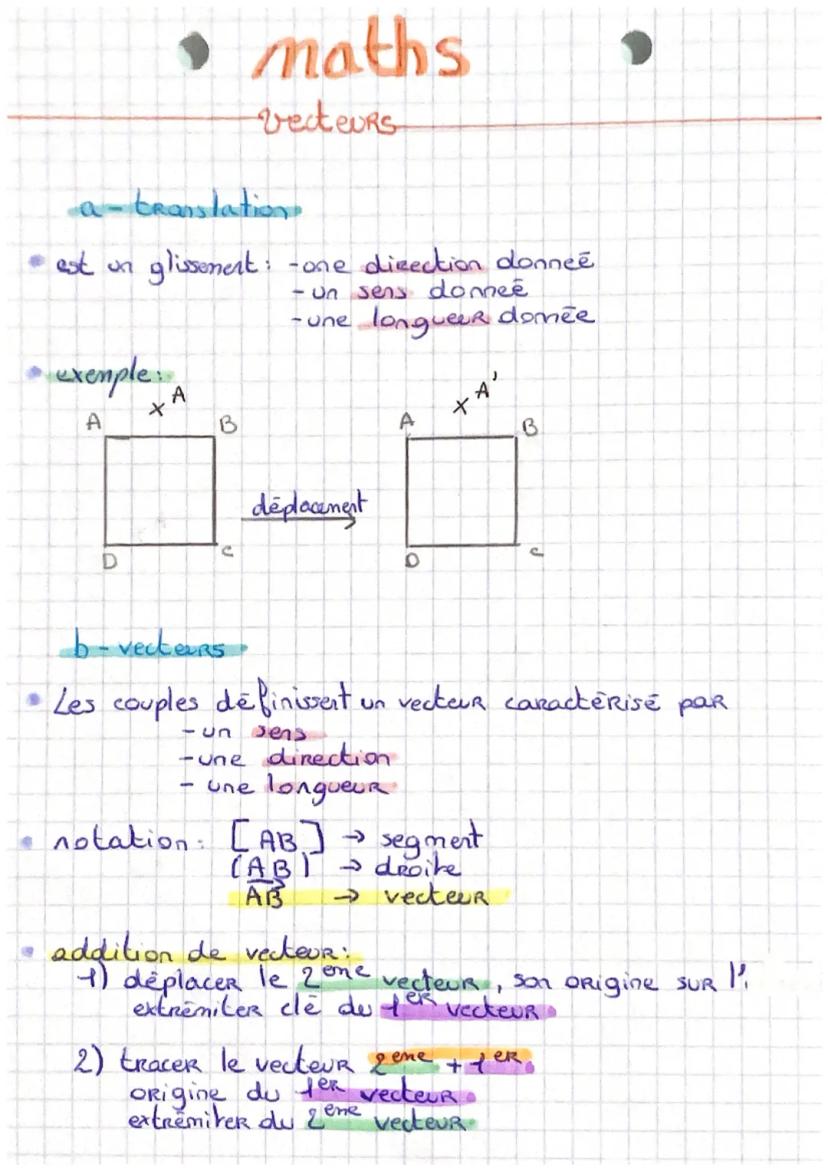 maths
vecteurs
a - translation
est un glissement : - one direction donneé
- un sens donneé
- une longueur donnée
exemple :
x A x A'
A B A B
déplacement
D C D C
b - vecteurs
Les couples définissent un vecteur caractérisé par
- un sens
- une direction
- une longueur
notation : [AB] → segment
(AB) → droite
AB → vecteur
addition de vecteur :
1) déplacer le 2eme vecteur, son origine sur l'
extrémiter clé du 1er vecteur
2) tracer le vecteur 2eme + 1er
origine du 1er vecteur
extrémiter du 2eme vecteur